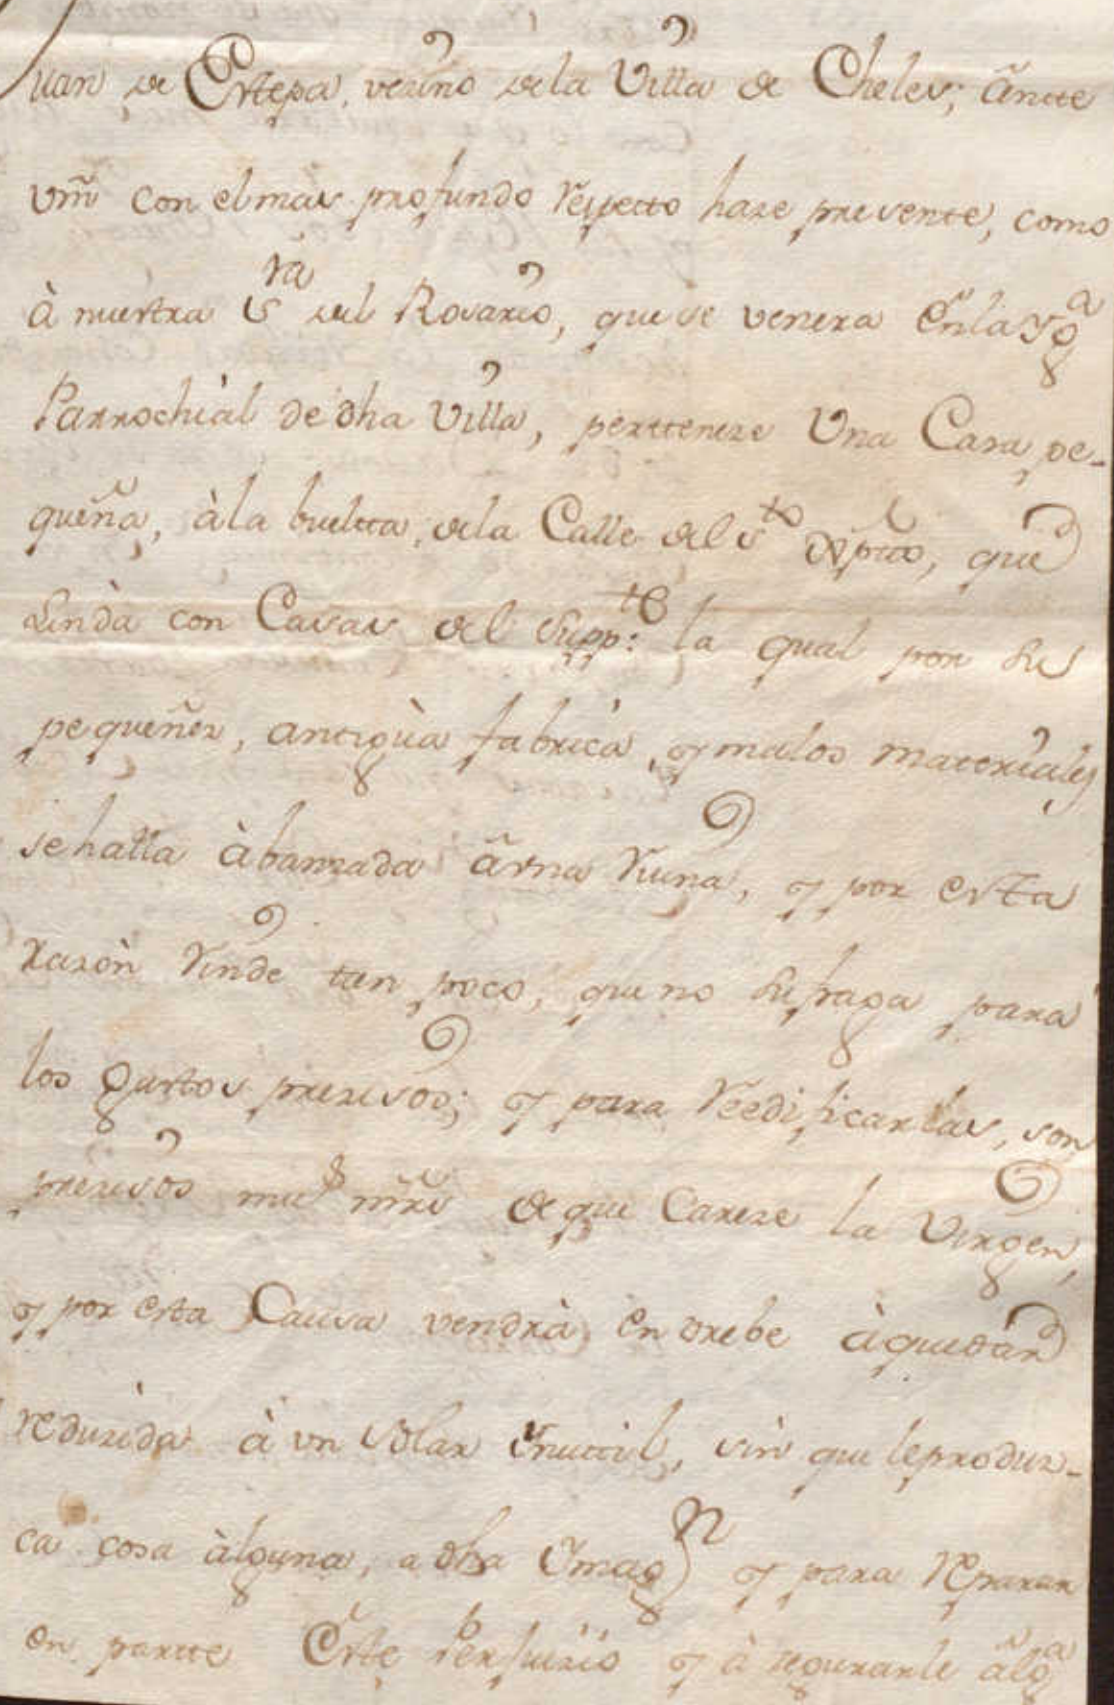 Juan de Estepa, vezino dela Villa de Cheles; ántte
Vm̃ con el mas profundo respecto haze presente, como
à nuestra Sra del Rosario, que se venera Enla Ygª
Parrochial de dha Villa, pertteneze Una Casa pe-
queña, à la buelta, dela Calle del Sto Xptto, que
Linda con Casas del Suppte: la qual por su
pequeñez, antigùa fabrica, y malos materiales
se halla àbanzada ã vna Ruina, y por esta
Razòn Rinde tan poco, que no sufraga para
los gastos prezisos; y para Reedificarlas, son
prezisos muchs mr̃s de que Careze la Virgen,
y por esta Causa vendrà en brebe à quedar
reduzida à vn Solar Ynuttil, sin que le produz-
ca cosa àlguna, a dha Ymagn y para Reparar
en partte Este Perjuizio y à segurarle ãlgª